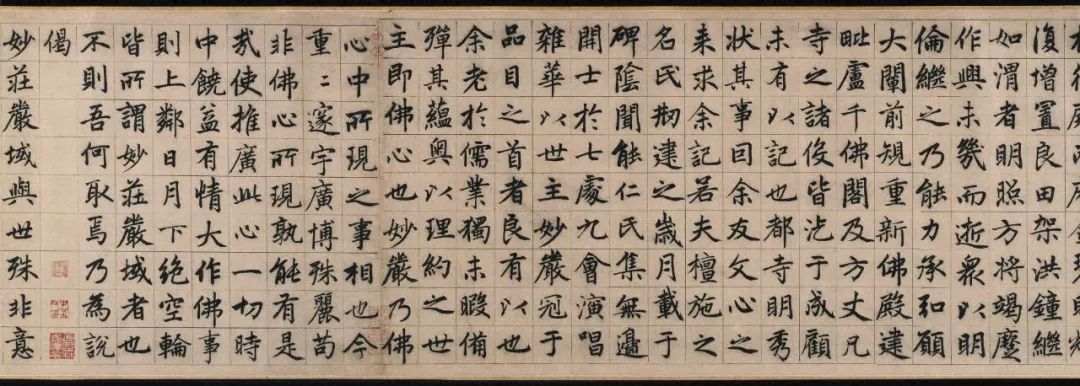 復增置良田架洪鐘繼
如渭者明照方將竭麼
作興未幾而逝衆以明
倫繼之乃能力承和願
大闡前規重新佛殿建
毗盧千佛閣及方丈凡
寺之諸役皆汔于成顧
未有以記也都寺明秀
狀其事回余友文心之
来求余記若夫檀施之
名氏剏建之歲月載于
碑陰聞能仁氏集無邊
開士於七處九會演唱
雜華以世主妙嚴冠于
品目之首者良有以也
余老於儒業獨未暇備
殫其蘊奧以理約之世
主即佛心也妙嚴乃佛
心中所現之事相也今
重二邃宇廣博殊麗苟
非佛心所現孰能有是
哉使推廣此心一切時
中饒益有情大作佛事
則上鄰日月下絶空輪
皆所謂妙莊嚴域者也
不則吾何取焉乃為說
偈
妙莊嚴域與世殊非意